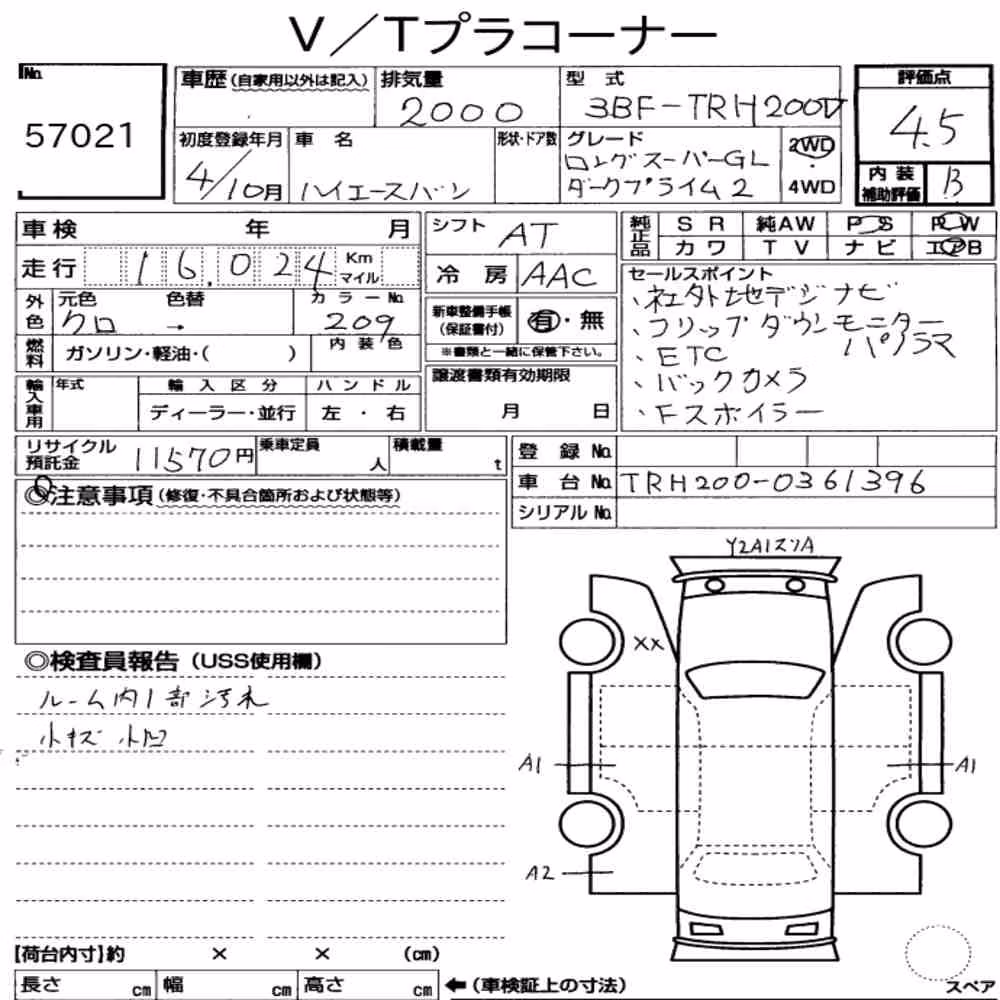 V／Tプラコーナー
No.
57021
車歴(自家用以外は記入)
排気量
2000
型 式
3BF-TRH200V
評価点
4.5
初度登録年月
4/10月
車 名
ハイエースバン
形状・ドア数
グレード
ロングスーパーGL
ダークプライム2
2WD
・
4WD
内装
補助評価
B
車検 年 月
シフト
AT
純正品
SR 純AW PS PW
カワ TV ナビ エアB
走行 16,024 Km
マイル
冷房 AAC
セールスポイント
、社外地デジナビ
、フリップダウンモニター
パノラマ
、ETC
、バックカメラ
、Fスポイラー
外色
元色 色替
クロ →
カラーNo.
209
新車整備手帳
(保証書付)
有・無
※書類と一緒に保管下さい。
燃料
ガソリン・軽油・( )
内装色
輸入車用
年式
輸入区分
ディーラー・並行
ハンドル
左・右
譲渡書類有効期限
月 日
リサイクル
預託金
11570円
乗車定員
人
積載量
t
登録No.
車台No. TRH200-0361396
シリアルNo.
◎注意事項(修復・不具合箇所および状態等)
◎検査員報告(USS使用欄)
ルーム内1部汚れ
小キズ 小凹
Y2A1スリA
XX
A1
A1
A2
【荷台内寸】約 × × (cm)
長さ cm 幅 cm 高さ cm
←(車検証上の寸法)
スペア